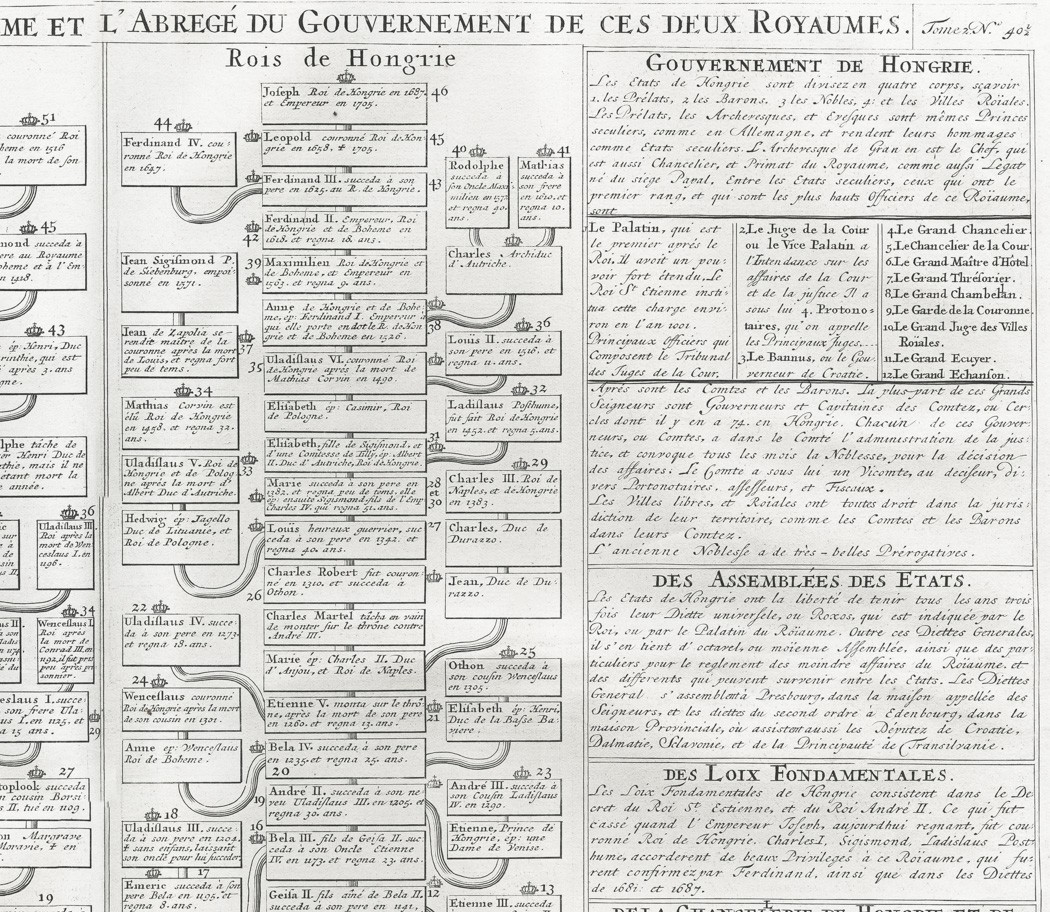 ME ET L'ABREGÉ DU GOUVERNEMENT DE CES DEUX ROYAUMES.
Tome 2. N.º 40½
51
couronné Roi
heme en 1516
la mort de son
45
mond succeda à
ere au Royaume
oheme et à l'Em
n 1418.
43
ép: Henri, Duc
rinthie, qui est
après 3. ans
gne.
lphe tâche de
er Henri Duc de
thie, mais il ne
etant mort la
e année.
36
Uladislaus III.
Roi après la
mort de Wen
ceslaus I. en
1196.
34
Wenceslaus I.
Roi après
la mort de
Conrad III. en
1192, il fut pris
peu après pri
sonnier.
eslaus I. succe
son frere Ula
us I. en 1125. et
a 15 ans.
29
27
toplook succeda
cousin Borsi
s II. tué en 1109.
on Margrave
Moravie, ✝ en
19
Rois de Hongrie
Joseph Roi de Hongrie en 1687.
et Empereur en 1705.
46
44
Ferdinand IV. cou-
ronné Roi de Hongrie
en 1647.
Leopold couronné Roi de Hon
grie en 1658. ✝ 1705.
45
Ferdinand III. succeda à son
pere en 1625. au R. de Hongrie.
43
Ferdinand II. Empereur, Roi
de Hongrie et de Boheme en
1618. et regna 18. ans.
42
40
Rodolphe
succeda à
son Oncle Maxi
milien en 1577.
et regna 40.
ans.
41
Mathias
succeda à
son frere
en 1610. et
regna 10.
ans.
Charles Archiduc
d'Autriche.
39
Maximilien Roi de Hongrie et
de Boheme, et Empereur en
1563. et regna 9. ans.
Jean Sigismond P.
de Siebenburg. empoi-
sonné en 1571.
Anne de Hongrie et de Bohe
me, ep: Ferdinand I. Empereur à
qui elle porte en dot le R. de Hon
grie et de Boheme en 1526.
38
Jean de Zapolia se-
rendit maître de la
couronne après la mort
de Louis, et regna fort
peu de tems.
37
36
Louïs II. succeda à
son pere en 1516. et
regna 11. ans.
35
Uladislaus VI. couronné Roi
de Hongrie après la mort de
Mathias Corvin en 1490.
34
Mathias Corvin est
élû Roi de Hongrie
en 1458. et regna 32.
ans.
Elisabeth ep: Casimir, Roi
de Pologne.
32
Ladislaus Posthume,
fut fait Roi de Hongrie
en 1452. et regna 5. ans.
Elisabeth, fille de Sigismond, et
d'une Comtesse de Tilly, ép. Albert
II. Duc d'Autriche, Roi de Hongrie.
31
Uladislaus V. Roi de
Hongrie et de Polog
ne après la mort d'
Albert Duc d'Autriche.
33
Marie succeda à son pere en
1382. et regna peu de tems. elle
ep: ensuite Sigismond fils de l'Emp
Charles IV. qui regna 51. ans.
28
et
30
29
Charles III. Roi de
Naples, et de Hongrie
en 1383.
Hedwig ép: Jagello
Duc de Lituanie, et
Roi de Pologne.
Louïs heureux guerrier, suc
ceda à son pere en 1342. et
regna 40. ans.
27
Charles, Duc de
Durazzo.
26
Charles Robert fut couron
né en 1310. et succeda à
Othon.
Jean, Duc de Du-
razzo.
22
Uladislaus IV. succe-
da à son pere en 1273.
et regna 18. ans.
Charles Martel tâcha en vain
de monter sur le throne contre
André III.
Marie ép: Charles II. Duc
d'Anjou, et Roi de Naples.
25
Othon succeda à
son cousin Wenceslaus
en 1305.
24
Wenceslaus couronné
Roi de Hongrie après la mort
de son cousin en 1301.
Etienne V. monta sur le thrô-
ne, après la mort de son pere
en 1260. et regna 13. ans.
21
Elisabeth ep: Henri,
Duc de la Basse Ba-
viere.
Anne ep: Wenceslaus
Roi de Boheme.
Bela IV. succeda à son pere
en 1235. et regna 25. ans.
20
André II. succeda à son ne
veu Uladislaus III. en 1205. et
regna 30. ans.
19
23
André III. succeda à
son Cousin Ladislaus
IV. en 1290.
18
Uladislaus III. succe
da à son pere en 1204
✝ sans enfans, laissant
son oncle pour lui succeder.
16
Bela III. fils de Geisa II. suc
ceda à son Oncle Etienne
IV. en 1173. et regna 23. ans.
Etienne, Prince de
Hongrie, ép: une
Dame de Venise.
17
Emeric succeda à son
pere Bela en 1195. et
regna 8. ans.
Geisa II. fils aîné de Bela II.
succeda à son pere en 1141,
12
13
Etienne III.
GOUVERNEMENT DE HONGRIE.
Les Etats de Hongrie sont divisez en quatre corps, sçavoir
1. les Prélats, 2 les Barons, 3 les Nobles, 4: et les Villes Roïales.
Les Prélats, les Archevesques, et Evesques sont mêmes Princes
seculiers, comme en Allemagne, et rendent leurs hommages
comme Etats seculiers. L'Archevesque de Gran en est le Chef, qui
est aussi Chancelier, et Primat du Royaume, comme aussi Legat
né du siege Papal. Entre les Etats seculiers, ceux qui ont le
premier rang, et qui sont les plus hauts Officiers de ce Roïaume,
sont
Le Palatin, qui est
le premier après le
Roi. Il avoit un pou-
voir fort étendu. Le
Roi St Etienne insti-
tua cette charge envi-
ron en l'an 1001.
Principaux Officiers qui
Composent le Tribunal
des Juges de la Cour.
2. Le Juge de la Cour
ou le Vice Palatin a
l'Intendance sur les
affaires de la Cour
et de la justice Il a
sous lui 4. Protono-
taires, qu'on appelle
les Principaux Juges....
3. Le Bannus, ou le Gou-
verneur de Croatie.
4. Le Grand Chancelier.
5. Le Chancelier de la Cour.
6. Le Grand Maître d'Hôtel.
7. Le Grand Thrésorier.
8. Le Grand Chambellan.
9. Le Garde de la Couronne.
10. Le Grand Juge des Villes
Roïales.
11. Le Grand Ecuyer.
12. Le Grand Echanson.
Après sont les Comtes et les Barons. La plus-part de ces Grands
Seigneurs sont Gouverneurs et Capitaines des Comtez, ou Cer
cles dont il y en a 74. en Hongrie. Chacun de ces Gouver
neurs, ou Comtes, a dans le Comté l'administration de la jus
tice, et convoque tous les mois la Noblesse, pour la décision
des affaires. Le Comte a sous lui un Vicomte, au deciseur, Di-
vers Pertonotaires, assesseurs, et Fiscaux.
Les Villes libres, et Roïales ont toutes droit dans la juris:
diction de leur territoire, comme les Comtes et les Barons
dans leurs Comtez.
L'ancienne Noblesse a de très-belles Prérogatives.
DES ASSEMBLÉES DES ETATS.
Les Etats de Hongrie ont la liberté de tenir tous les ans trois
fois leur Diette universele, ou Roxos, qui est indiquée par le
Roi, ou par le Palatin du Roïaume. Outre ces Diettes Generales,
il s'en tient d'octavel, ou moienne Assemblée, ainsi que des par
ticuliers pour le reglement des moindre affaires du Roïaume. et
des differents qui peuvent survenir entre les Etats. Les Diettes
General s'assemblent à Presbourg, dans la maison appellée des
Seigneurs, et les diettes du second ordre à Edenbourg, dans la
maison Provinciale, où assistent aussi les Députez de Croatie,
Dalmatie, Sclavonie, et de la Principauté de Transilvanie.
DES LOIX FONDAMENTALES.
Les Loix Fondamentales de Hongrie consistent dans le De
cret du Roi St. Estienne, et du Roi André II. Ce qui fut
cassé quand l'Empereur Joseph, aujourdhui regnant, fut cou
ronné Roi de Hongrie. Charles I, Sigismond, Ladislaus Post
hume, accorderent de beaux Privileges à ce Roïaume, qui fu-
rent confirmez par Ferdinand, ainsi que dans les Diettes
de 1681: et 1687.
DE LA CHANCELERIE DE HONGRIE ET DE